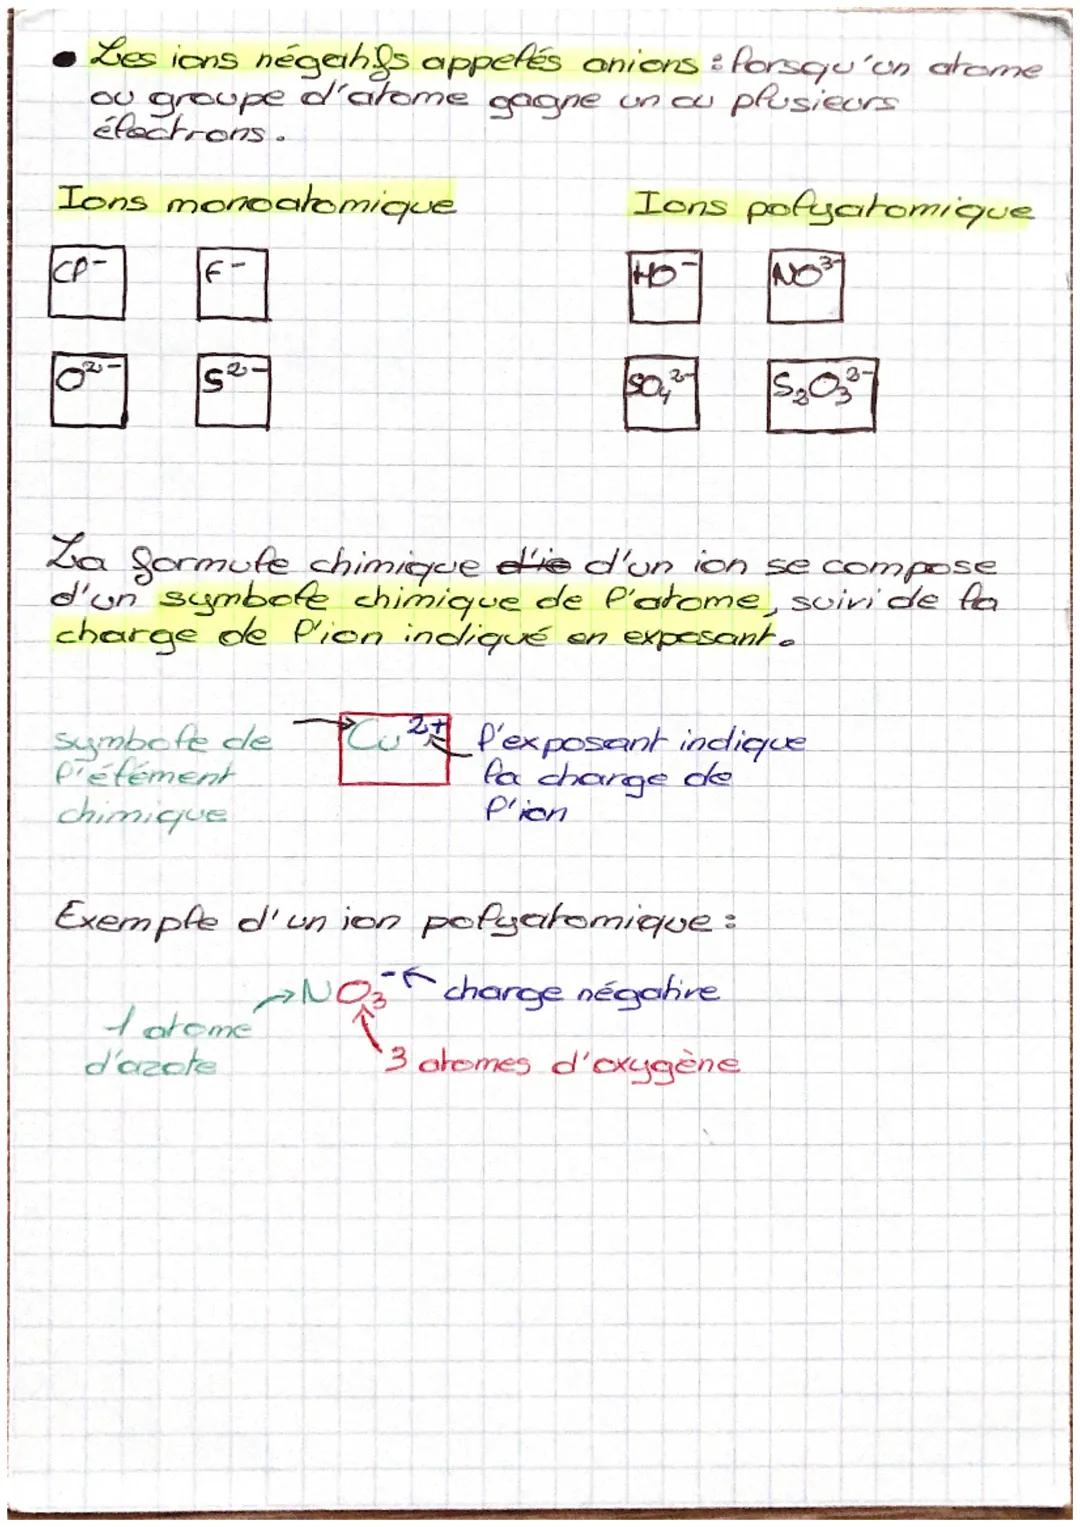 • Les ions négatifs appelés anions : lorsqu'un atome
ou groupe d'atome gagne un ou plusieurs
électrons.
Ions monoatomique Ions polyatomique
Cl⁻ F⁻ HO⁻ NO³⁻
O²⁻ S²⁻ SO₄²⁻ S₂O₃²⁻
La formule chimique d'io d'un ion se compose
d'un symbole chimique de l'atome, suivi de la
charge de l'ion indiqué en exposant.
symbole de
l'élément
chimique
Cu²⁺
l'exposant indique
la charge de
l'ion
Exemple d'un ion polyatomique :
NO₃⁻ charge négative
1 atome
d'azote
3 atomes d'oxygène